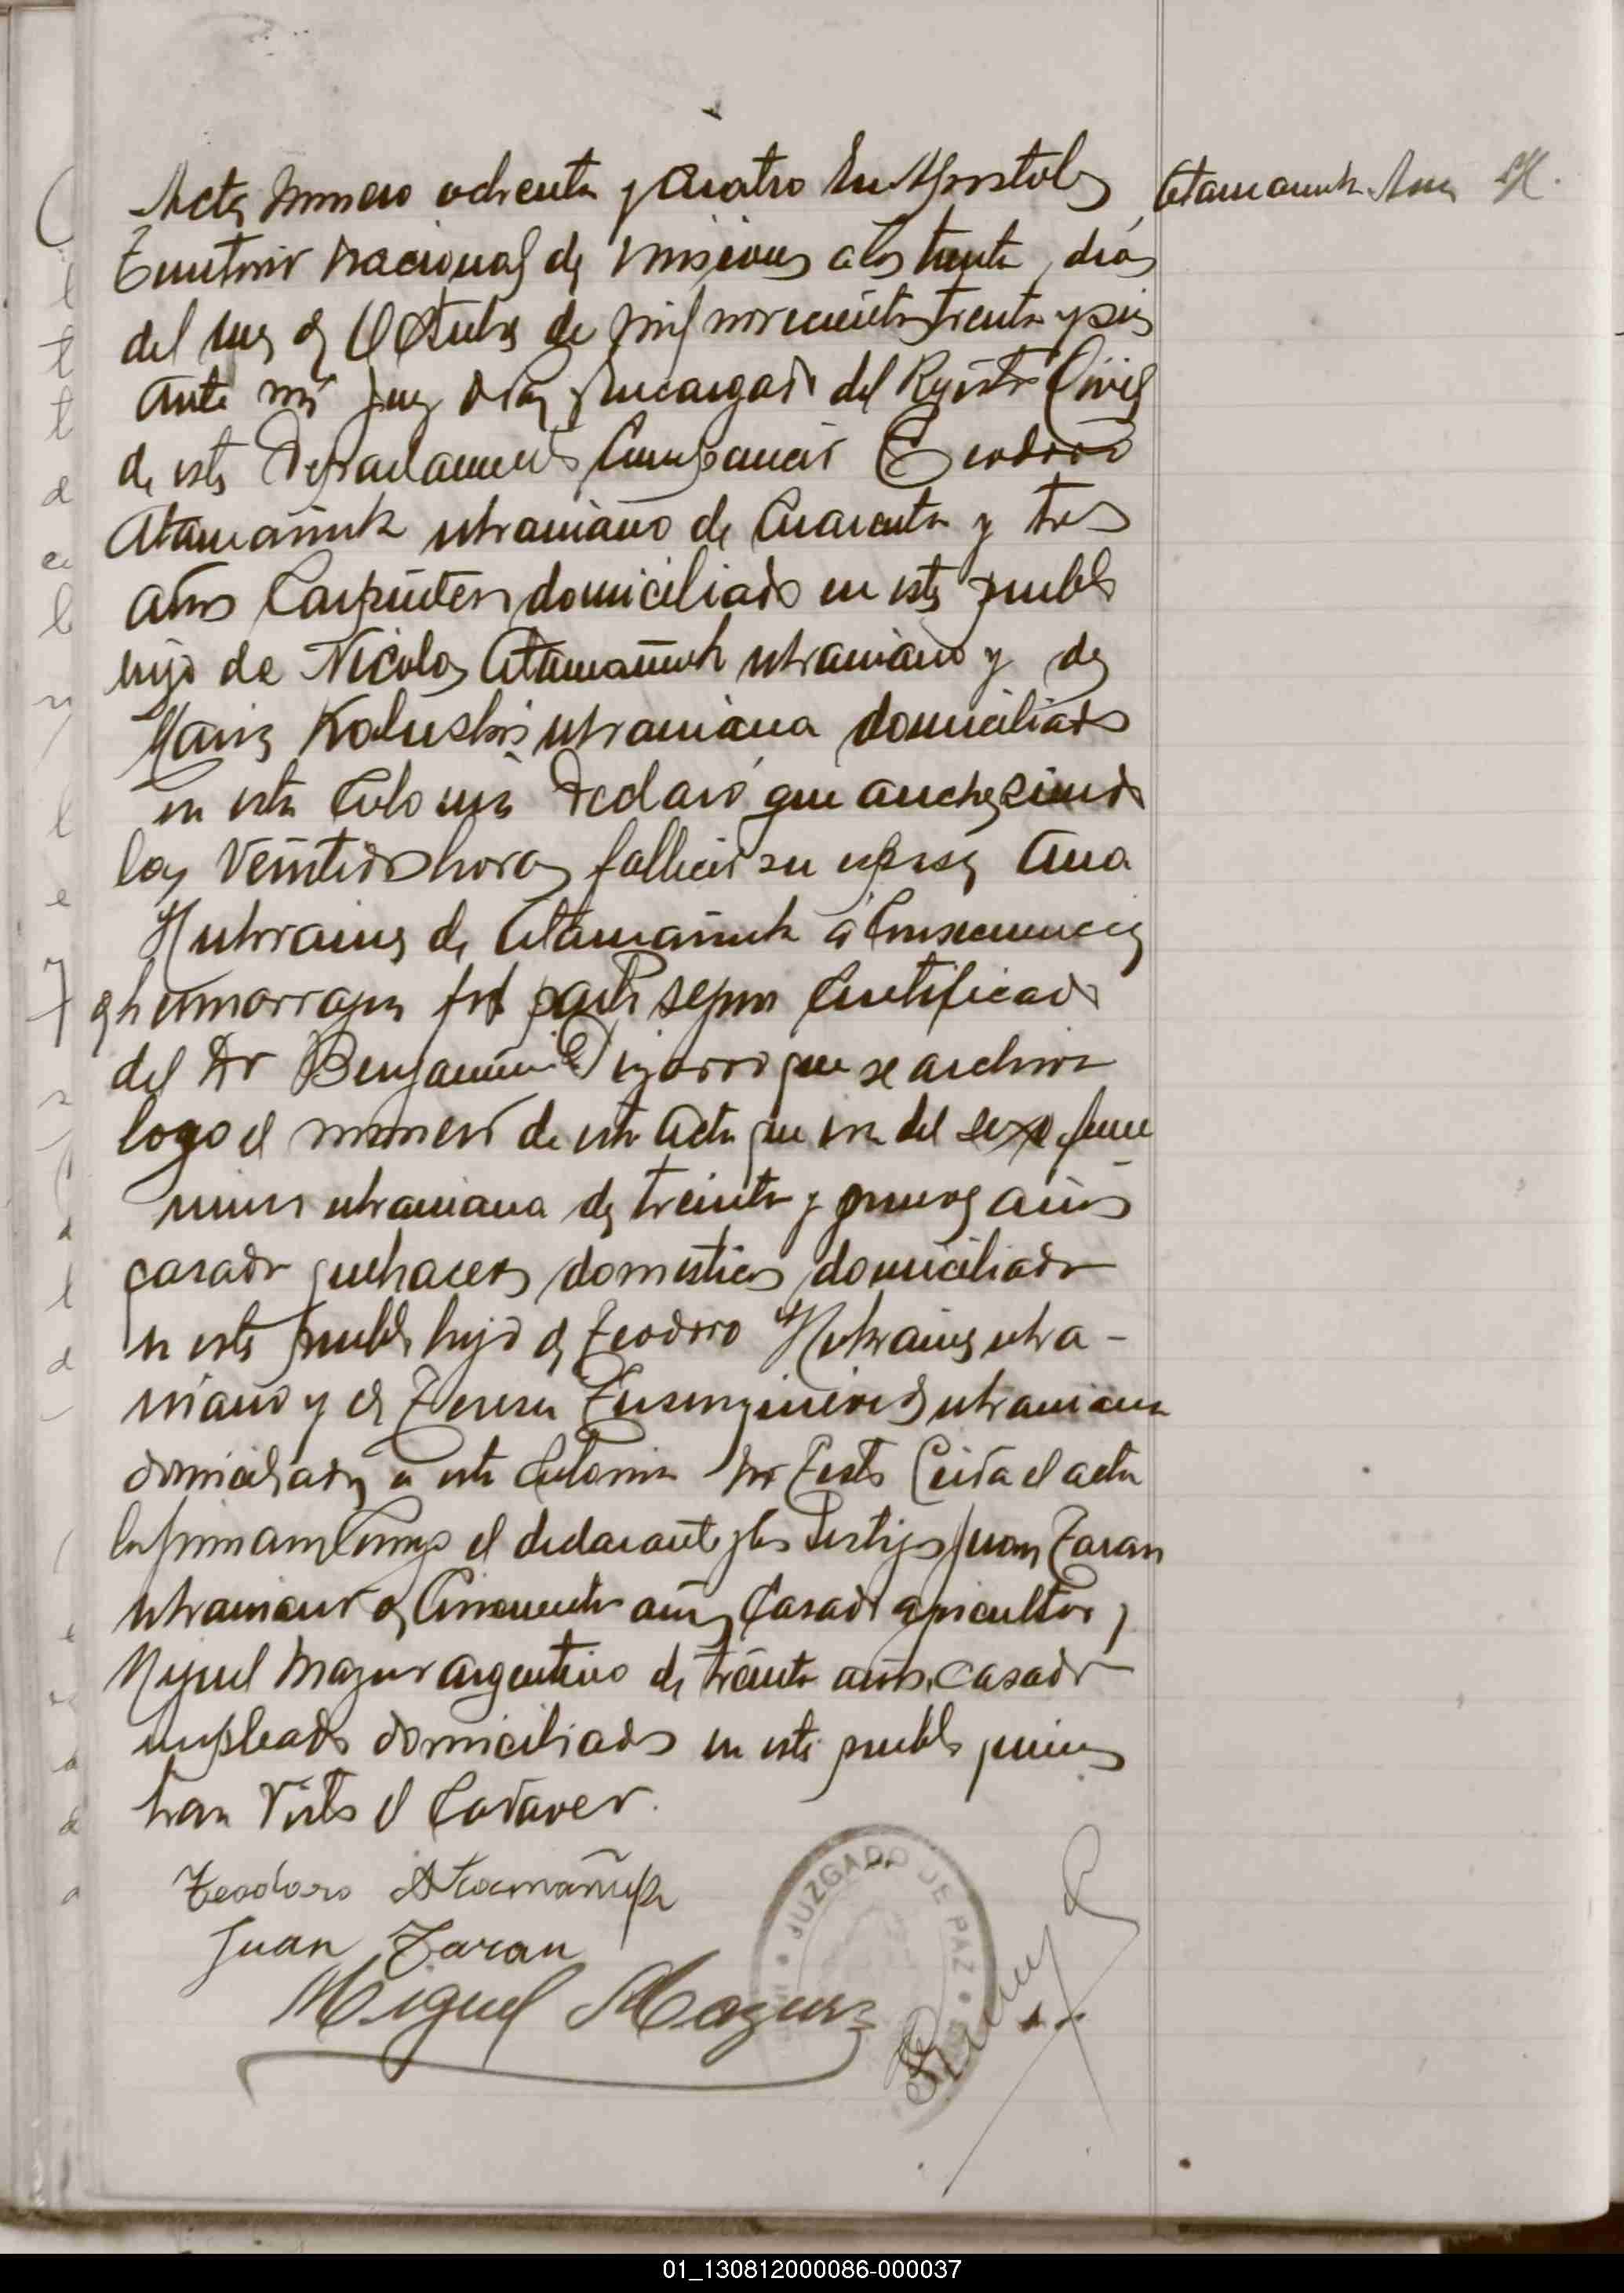 Acta numero ochenta y cuatro En Apostoles
Atamañuk Ana H.
Territorio nacional de Misiones a los treinta dias
del mes de Octubre de mil novecientos treinta y seis
Ante mi Juez de Paz y Encargado del Registro Civil
de este Departamento Compareció Teodoro
Atamañuk ukraniano de Cuarenta y tres
años Carpintero domiciliado en este pueblo
hijo de Nicolas Atamañuk ukraniano y de
Maria ukraniana domiciliados
en esta Colonia Declaró que anoche siendo
las Veintidos horas falleció su esposa Ana
de Atamañuk á Consecuencia
de hemorragia post parto segun Certificado
del Dr Benjamin Pizarro que se archiva
bajo el numero de esta acta que era del sexo feme
nino ukraniana de treinta y nueve años
casada quehaceres domesticos domiciliada
en este pueblo hija de Teodoro ukra-
niano y de Teresa ukraniana
domiciliados en esta Colonia Leida el acta
la firmaron Conmigo el declarante y los testigos Juan Taran
ukraniano de Cincuenta años Casado agricultor y
Miguel Mazur argentino de treinta años, casado
empleado domiciliados en este pueblo quienes
han Visto el Cadaver.
Teodoro Atamañuk
Juan Taran
Miguel Mazur
JUZGADO DE PAZ
01_130812000086-000037